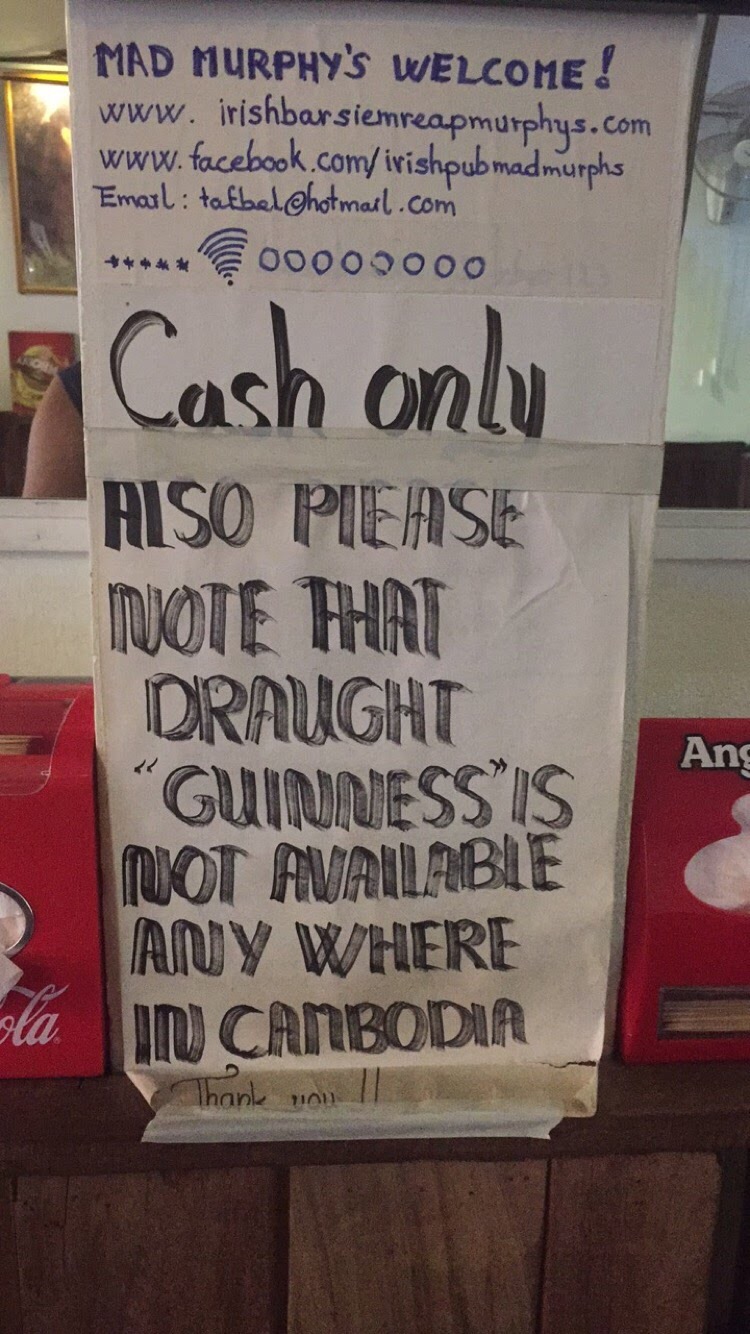 MAD MURPHY'S WELCOME!
www. irishbarsiemreapmurphys.com
www.facebook.com/irishpubmadmurphs
Email: tafbel@hotmail.com
***** 00000000
Cash only
ALSO PLEASE
NOTE THAT
DRAUGHT
"GUINNESS" IS
NOT AVAILABLE
ANY WHERE
IN CAMBODIA
Thank you !!
Ang
ola